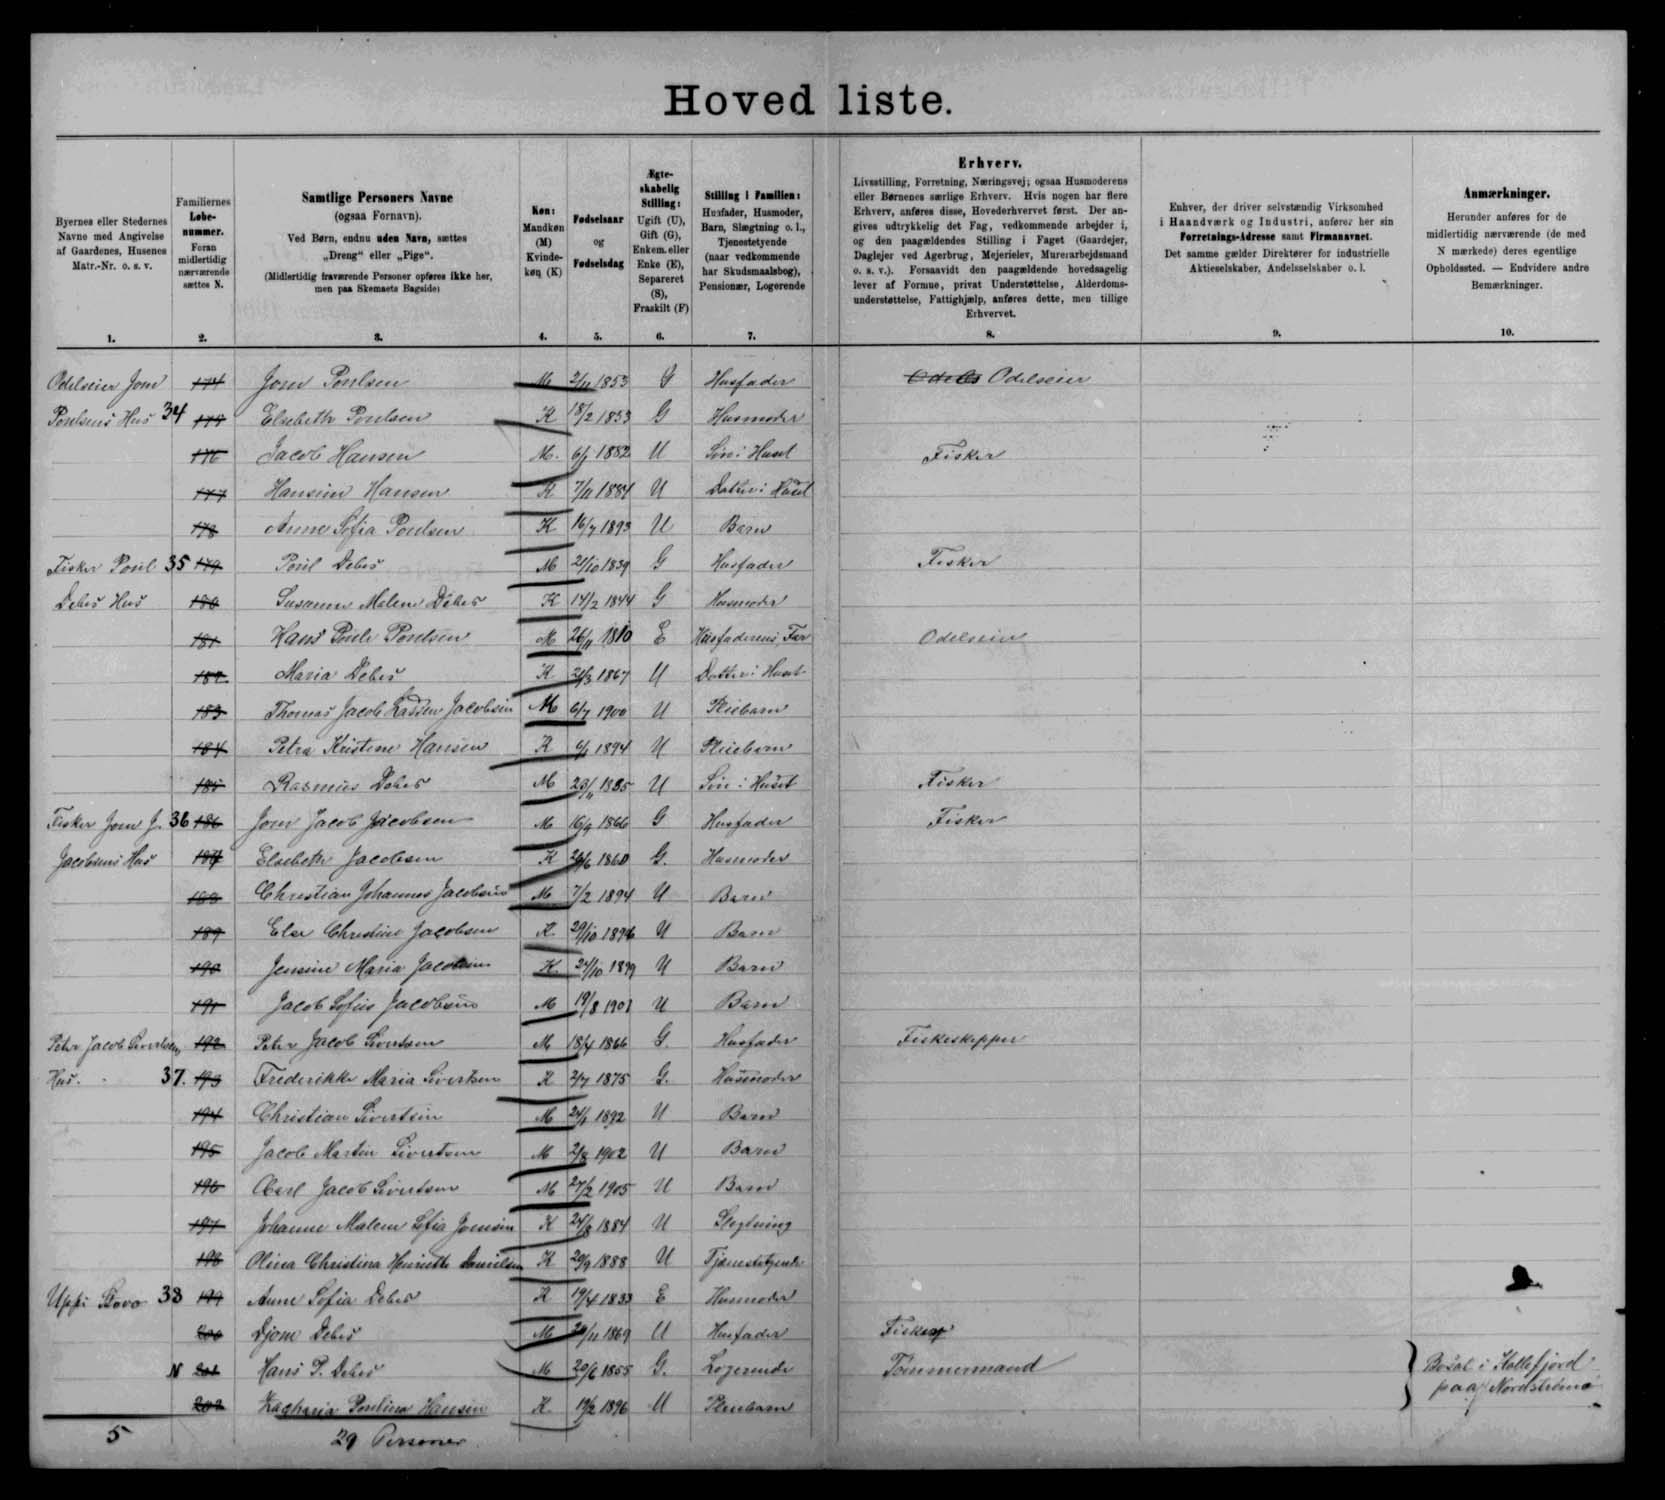 Hoved liste.
Byernes eller Stedernes Navne med Angivelse af Gaardenes, Husenes Matr.-Nr. o. s. v.
Familiernes Løbe-nummer. Foran midlertidig nærværende sættes N.
Samtlige Personers Navne
(ogsaa Fornavn).
Ved Børn, endnu uden Navn, sættes „Dreng" eller „Pige".
(Midlertidig fraværende Personer opføres ikke her, men paa Skemaets Bagside)
Køn: Mandkøn (M) Kvinde-køn (K)
Fødselsaar og Fødselsdag
Ægte-skabelig Stilling: Ugift (U), Gift (G), Enkem. eller Enke (E), Separeret (S), Fraskilt (F)
Stilling i Familien: Husfader, Husmoder, Barn, Slægtning o. l., Tjenestetyende (naar vedkommende har Skudsmaalsbog), Pensionær, Logerende
Erhverv.
Livsstilling, Forretning, Næringsvej; ogsaa Husmoderens
eller Børnenes særlige Erhverv. Hvis nogen har flere
Erhverv, anføres disse, Hovederhvervet først. Der an-
gives udtrykkelig det Fag, vedkommende arbejder i,
og den paagældendes Stilling i Faget (Gaardejer,
Daglejer ved Agerbrug, Mejerielev, Murerarbejdsmand
o. s. v.). Forsaavidt den paagældende hovedsagelig
lever af Formue, privat Understøttelse, Alderdoms-
understøttelse, Fattighjælp, anføres dette, men tillige
Erhvervet.
Enhver, der driver selvstændig Virksomhed
i Haandværk og Industri, anfører her sin
Forretnings-Adresse samt Firmanavnet.
Det samme gælder Direktører for industrielle
Aktieselskaber, Andelsselskaber o. l.
Anmærkninger.
Herunder anføres for de
midlertidig nærværende (de med
N mærkede) deres egentlige
Opholdssted. — Endvidere andre
Bemærkninger.
1. 2. 3. 4. 5. 6. 7. 8. 9. 10.
Odelseier Jom 174 Jom Poulsen M 2/11 1853 G Husfader Odels Odelseier
Poulsens Hus 34 175 Elsebeth Poulsen K 18/2 1853 G Husmoder
176 Jacob Hansen M. 6/1 1882 U Søn i Huset Fisker
177 Hansine Hansen K 7/11 1884 U Datter i Huset
178 Anne Sofia Poulsen K 16/7 1893 U Barn
Fisker Poul 35 179 Poul Debes M 21/10 1839 G Husfader Fisker
Debes Hus 180 Susanne Malene Debes K 14/2 1844 G Husmoder
181 Hans Poule Poulsen M 26/11 1810 E Husfaderens Far Odelseier
182 Maria Debes K 21/3 1867 U Datter i Huset
183 Thomas Jacob Lassen Jacobsen M 6/7 1900 U Pleiebarn
184 Petra Kristine Hansen K 6/1 1894 U Pleiebarn
185 Rasmus Debes M 23/11 1885 U Søn i Huset Fisker
Fisker Jom J. 36 186 Jom Jacob Jacobsen M 16/9 1866 G Husfader Fisker
Jacobsens Hus 187 Elsebeth Jacobsen K 26/6 1860 G. Husmoder
188 Christian Johannes Jacobsen M 7/2 1894 U Barn
189 Else Christine Jacobsen K. 29/10 1896 U Barn
190 Jensine Maria Jacobsen K 24/10 1899 U Barn
191 Jacob Sofus Jacobsen M 19/8 1901 U Barn
Peter Jacob Sivertsens 192 Peter Jacob Sivertsen M 18/4 1866 G. Husfader Fiskeskipper
Hus. 37. 193 Frederikke Maria Sivertsen K 2/7 1875 G. Husmoder
194 Christian Sivertsen M 24/1 1892 U Barn
195 Jacob Martin Sivertsen M 2/8 1902 U Barn
196 Carl Jacob Sivertsen M 27/2 1905 U Barn
197 Johanne Malene Sofia Joensen K 24/3 1884 U Slegtning
198 Olina Christina Henriette Danielsen K 29/9 1888 U Tjenestetyende
Uppi Stovo 38 199 Anne Sofia Debes K 19/4 1833 E Husmoder
200 Djone Debes M 29/11 1869 U Husfader Fisker
N 201 Hans P. Debes M 20/6 1855 G. Logerende Tømmermand Bosat i Kollefjord
202 Zacharia Poulina Hansen K 19/2 1896 U Pleiebarn paa Nordstrømø
5 29 Personer